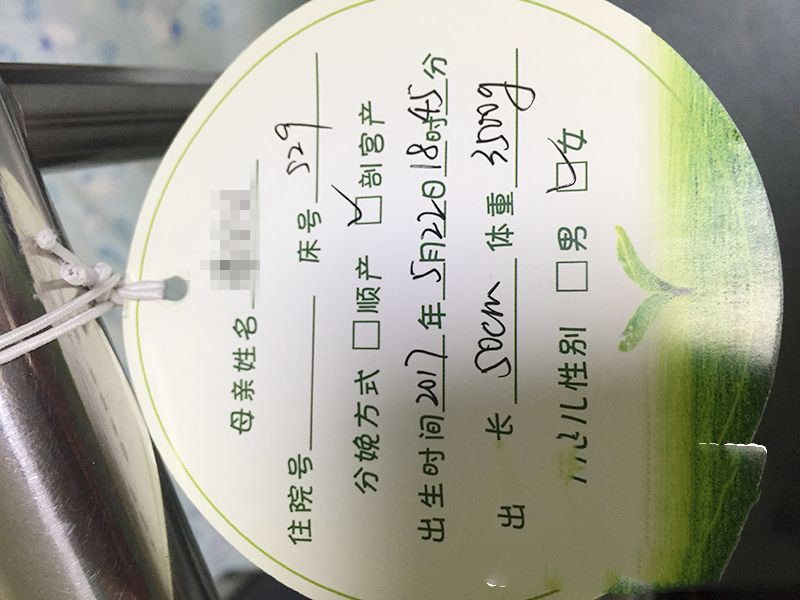 母亲姓名
住院号 床号 529
分娩方式 □顺产 ☑剖宫产
出生时间2017年5月22日18时45分
出 长 50cm 体重 3500g
儿性别 □男 ☑女